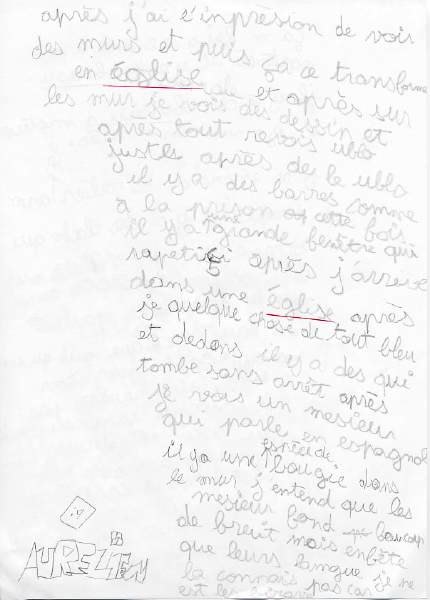 après j'ai l'inprèsion de voir
des murs et puis ça ce transforme
en église et après sur
les mur je vois des dessin et
après tout revois ublo
juste après de le ublo
il y a des barres comme
a la prison et cette fois
il y a une grande fenêtre qui
rapeti après j'arrive
dans une église après
je quelque chose de tout bleu
et dedans il y a des qui
tombe sans arrêt après
je vois un mesieur
qui parle en espagnol
il ya une espèce de bougie dans
le mur j'entend que les
mesieur fond beaucoup
de breuit mais enbête
que leurs langue je ne
la connais pas car
est les
19
AURELIEN